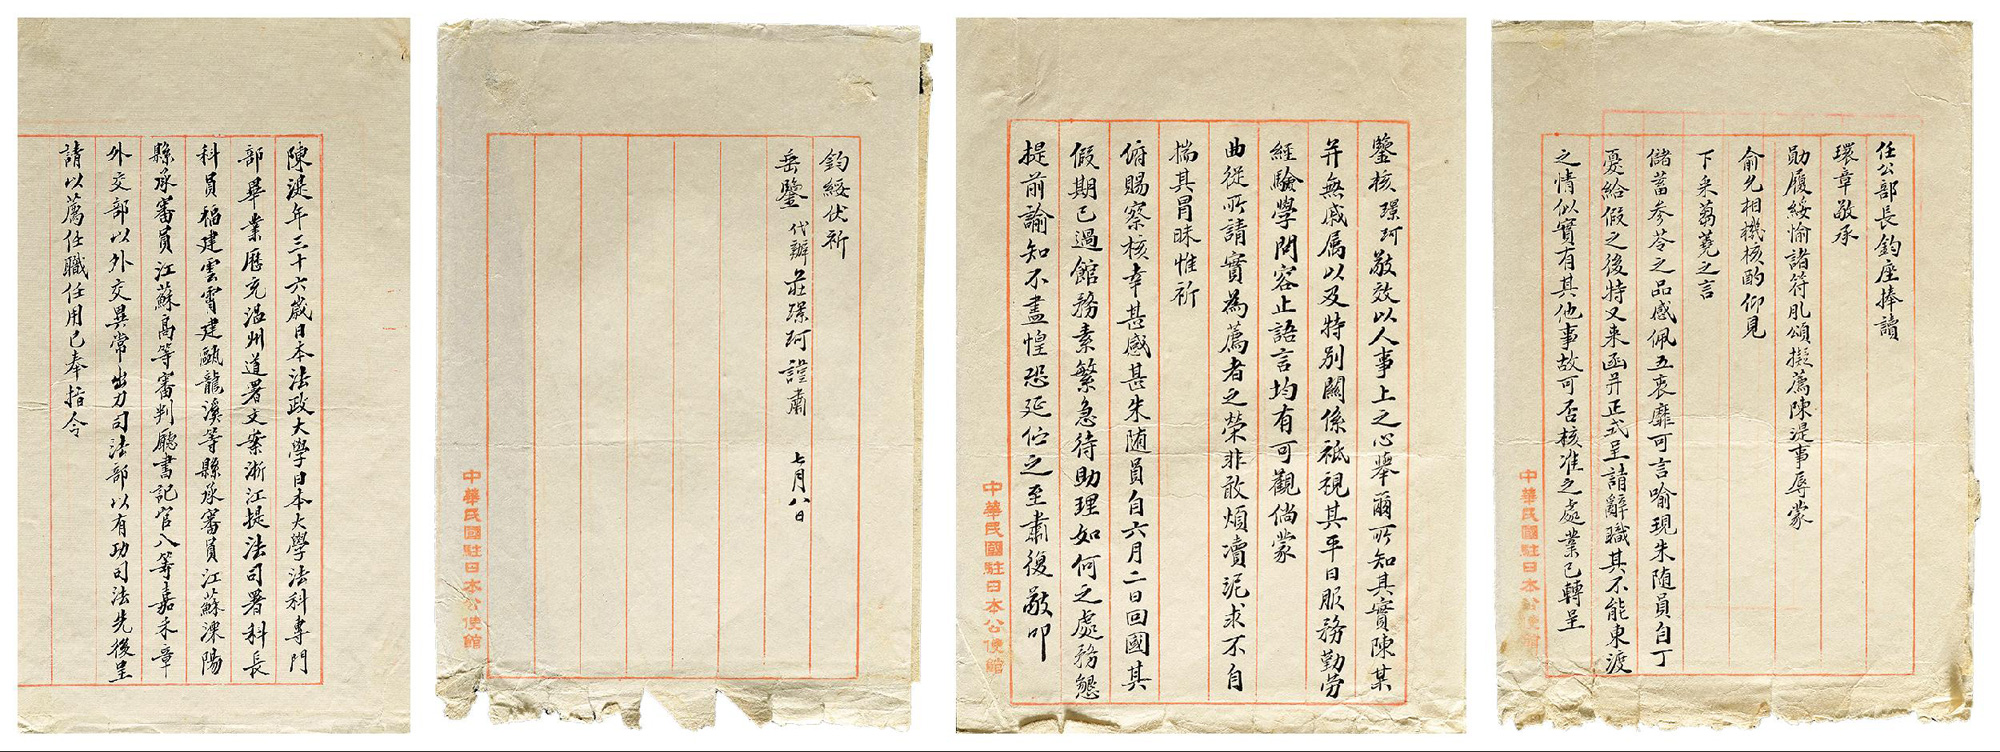 任公部長鈞座捧讀
環章敬承
勛履綏愉諸符肊頌擬薦陳湜事辱蒙
俞允相機核酌仰見
下采蒭蕘之言
儲蓄參苓之品感佩五衷靡可言喻現朱随員自丁
憂給假之後特又来函并正式呈請辭職其不能東渡
之情似實有其他事故可否核准之處業已轉呈
中華民國駐日本公使館
鑒核璟珂敬效以人事上之心舉爾所知其實陳某
并無戚属以及特别關係祇視其平日服務勤勞
經驗學問容止語言均有可觀倘蒙
曲從所請實為薦者之榮非敢煩瀆泥求不自
揣其冐昧惟祈
俯賜察核幸甚感甚朱随員自六月二日回國其
假期已過館務素繁急待助理如何之處務懇
提前諭知不盡惶恐延佇之至肅復敬叩
中華民國駐日本公使館
鈞綏伏祈
垂鑒 代辦莊璟珂謹肅 七月八日
中華民國駐日本公使館
陳湜年三十六歲日本法政大學日本大學法科專門
部畢業歷充温州道署文案浙江提法司署科長
科員福建雲霄建甌龍溪等縣承審員江蘇溧陽
縣承審員江蘇高等審判廳書記官八等嘉禾章
外交部以外交異常出力司法部以有功司法先後呈
請以薦任職任用已奉指令